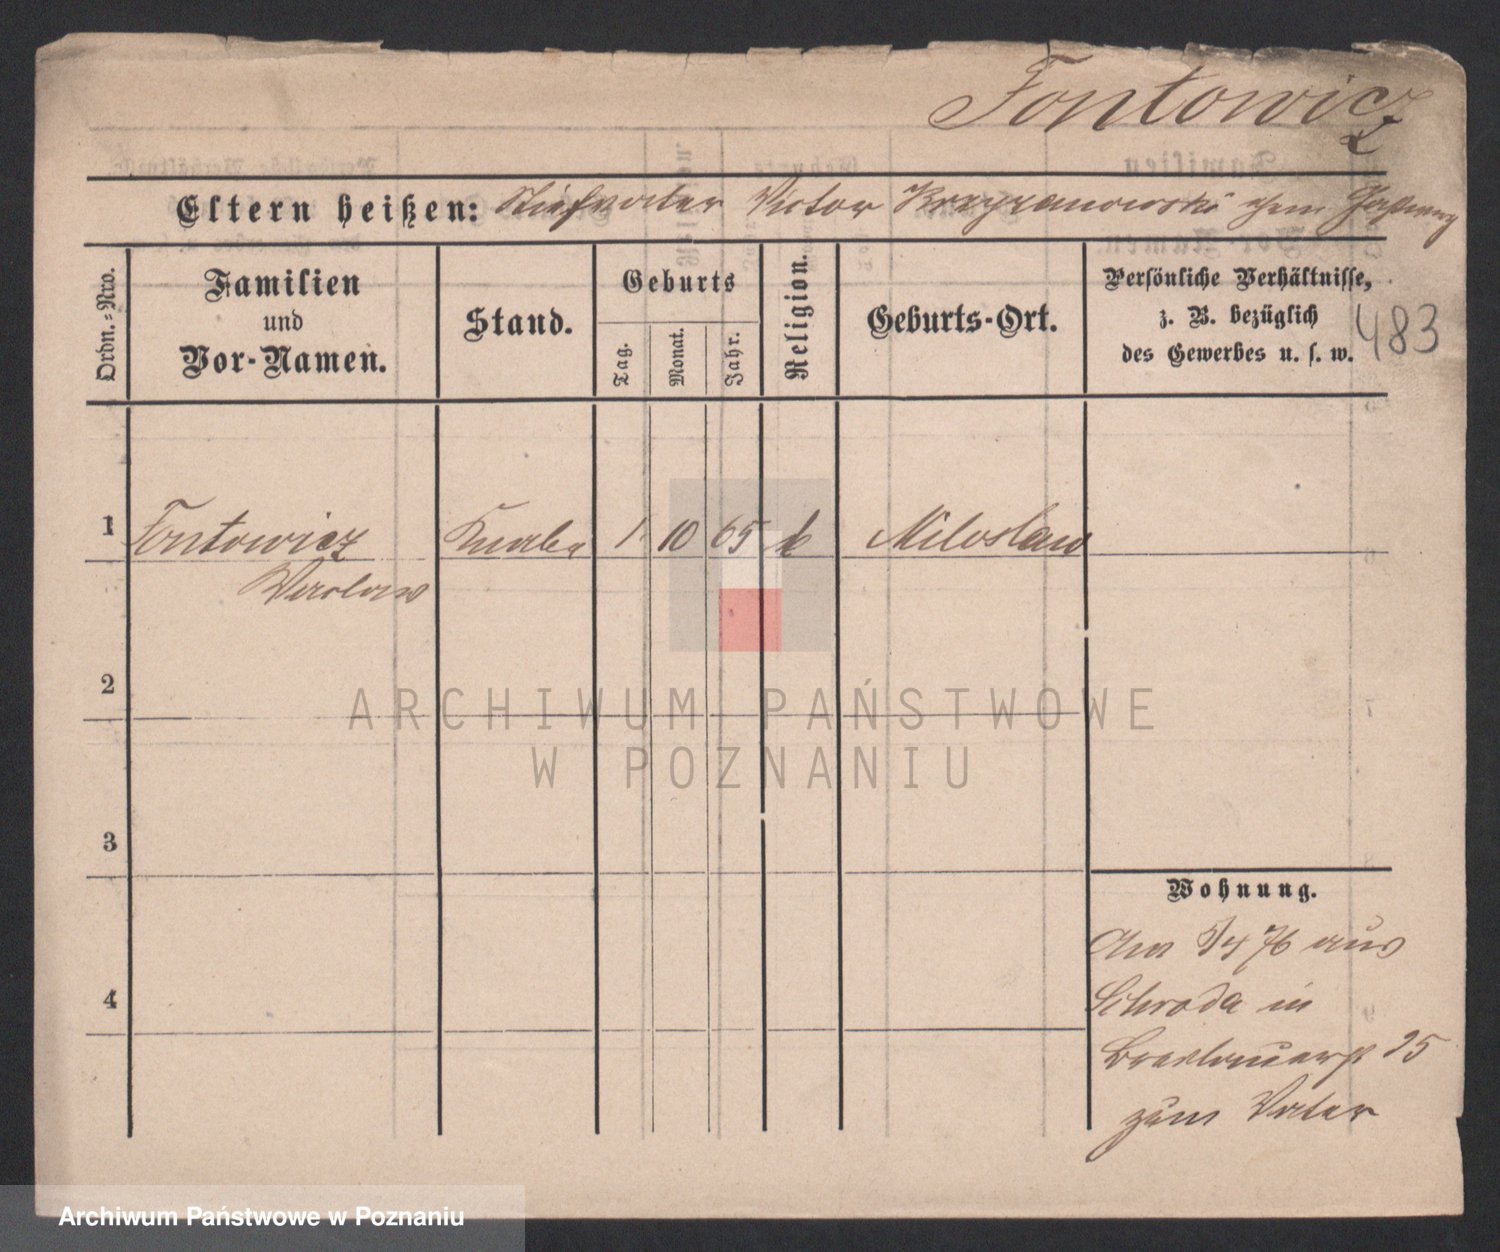 Fontowicz
Eltern heißen: Stiefvater Victor Krzyzanowski
Ordn.=Nro.
Familien
und
Vor-Namen.
Stand.
Geburts
Tag.
Monat.
Jahr.
Religion.
Geburts-Ort.
Persönliche Verhältnisse,
z. B. bezüglich
des Gewerbes u. s. w.
483
1 Fontowicz Knabe 1. 10 65 k Miloslaw
Waclaw
2
3
4
Wohnung.
4 76 aus
Schroda in
Breslauerst 25
zum Vater
ARCHIWUM PAŃSTWOWE
W POZNANIU
Archiwum Państwowe w Poznaniu